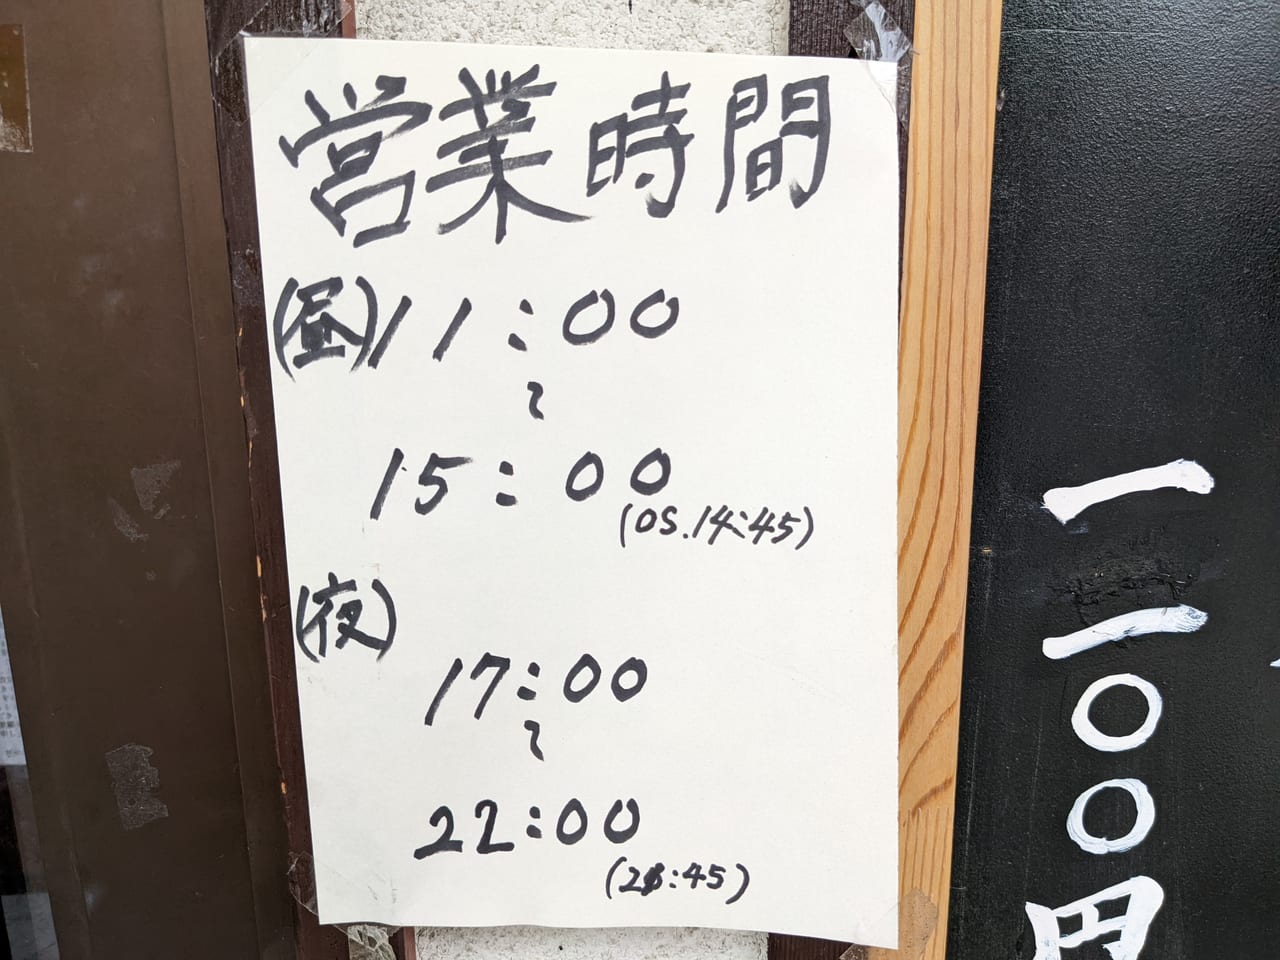 営業時間
(昼)11:00
〜
15:00
(OS.14:45)
(夜)
17:00
〜
22:00
一一〇〇円